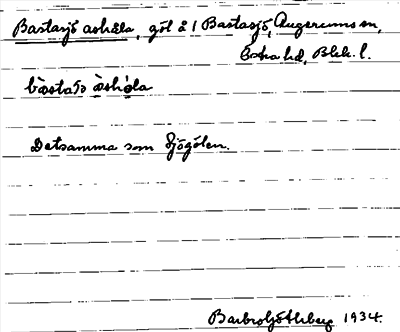 Bastasjö askåla, göl å 1 Bastasjö, Augerums sn,
Östra hd, Blek. l.
bàstaſɔ àskåla
Detsamma som Sjögölen.
Barbro Göthberg 1934.